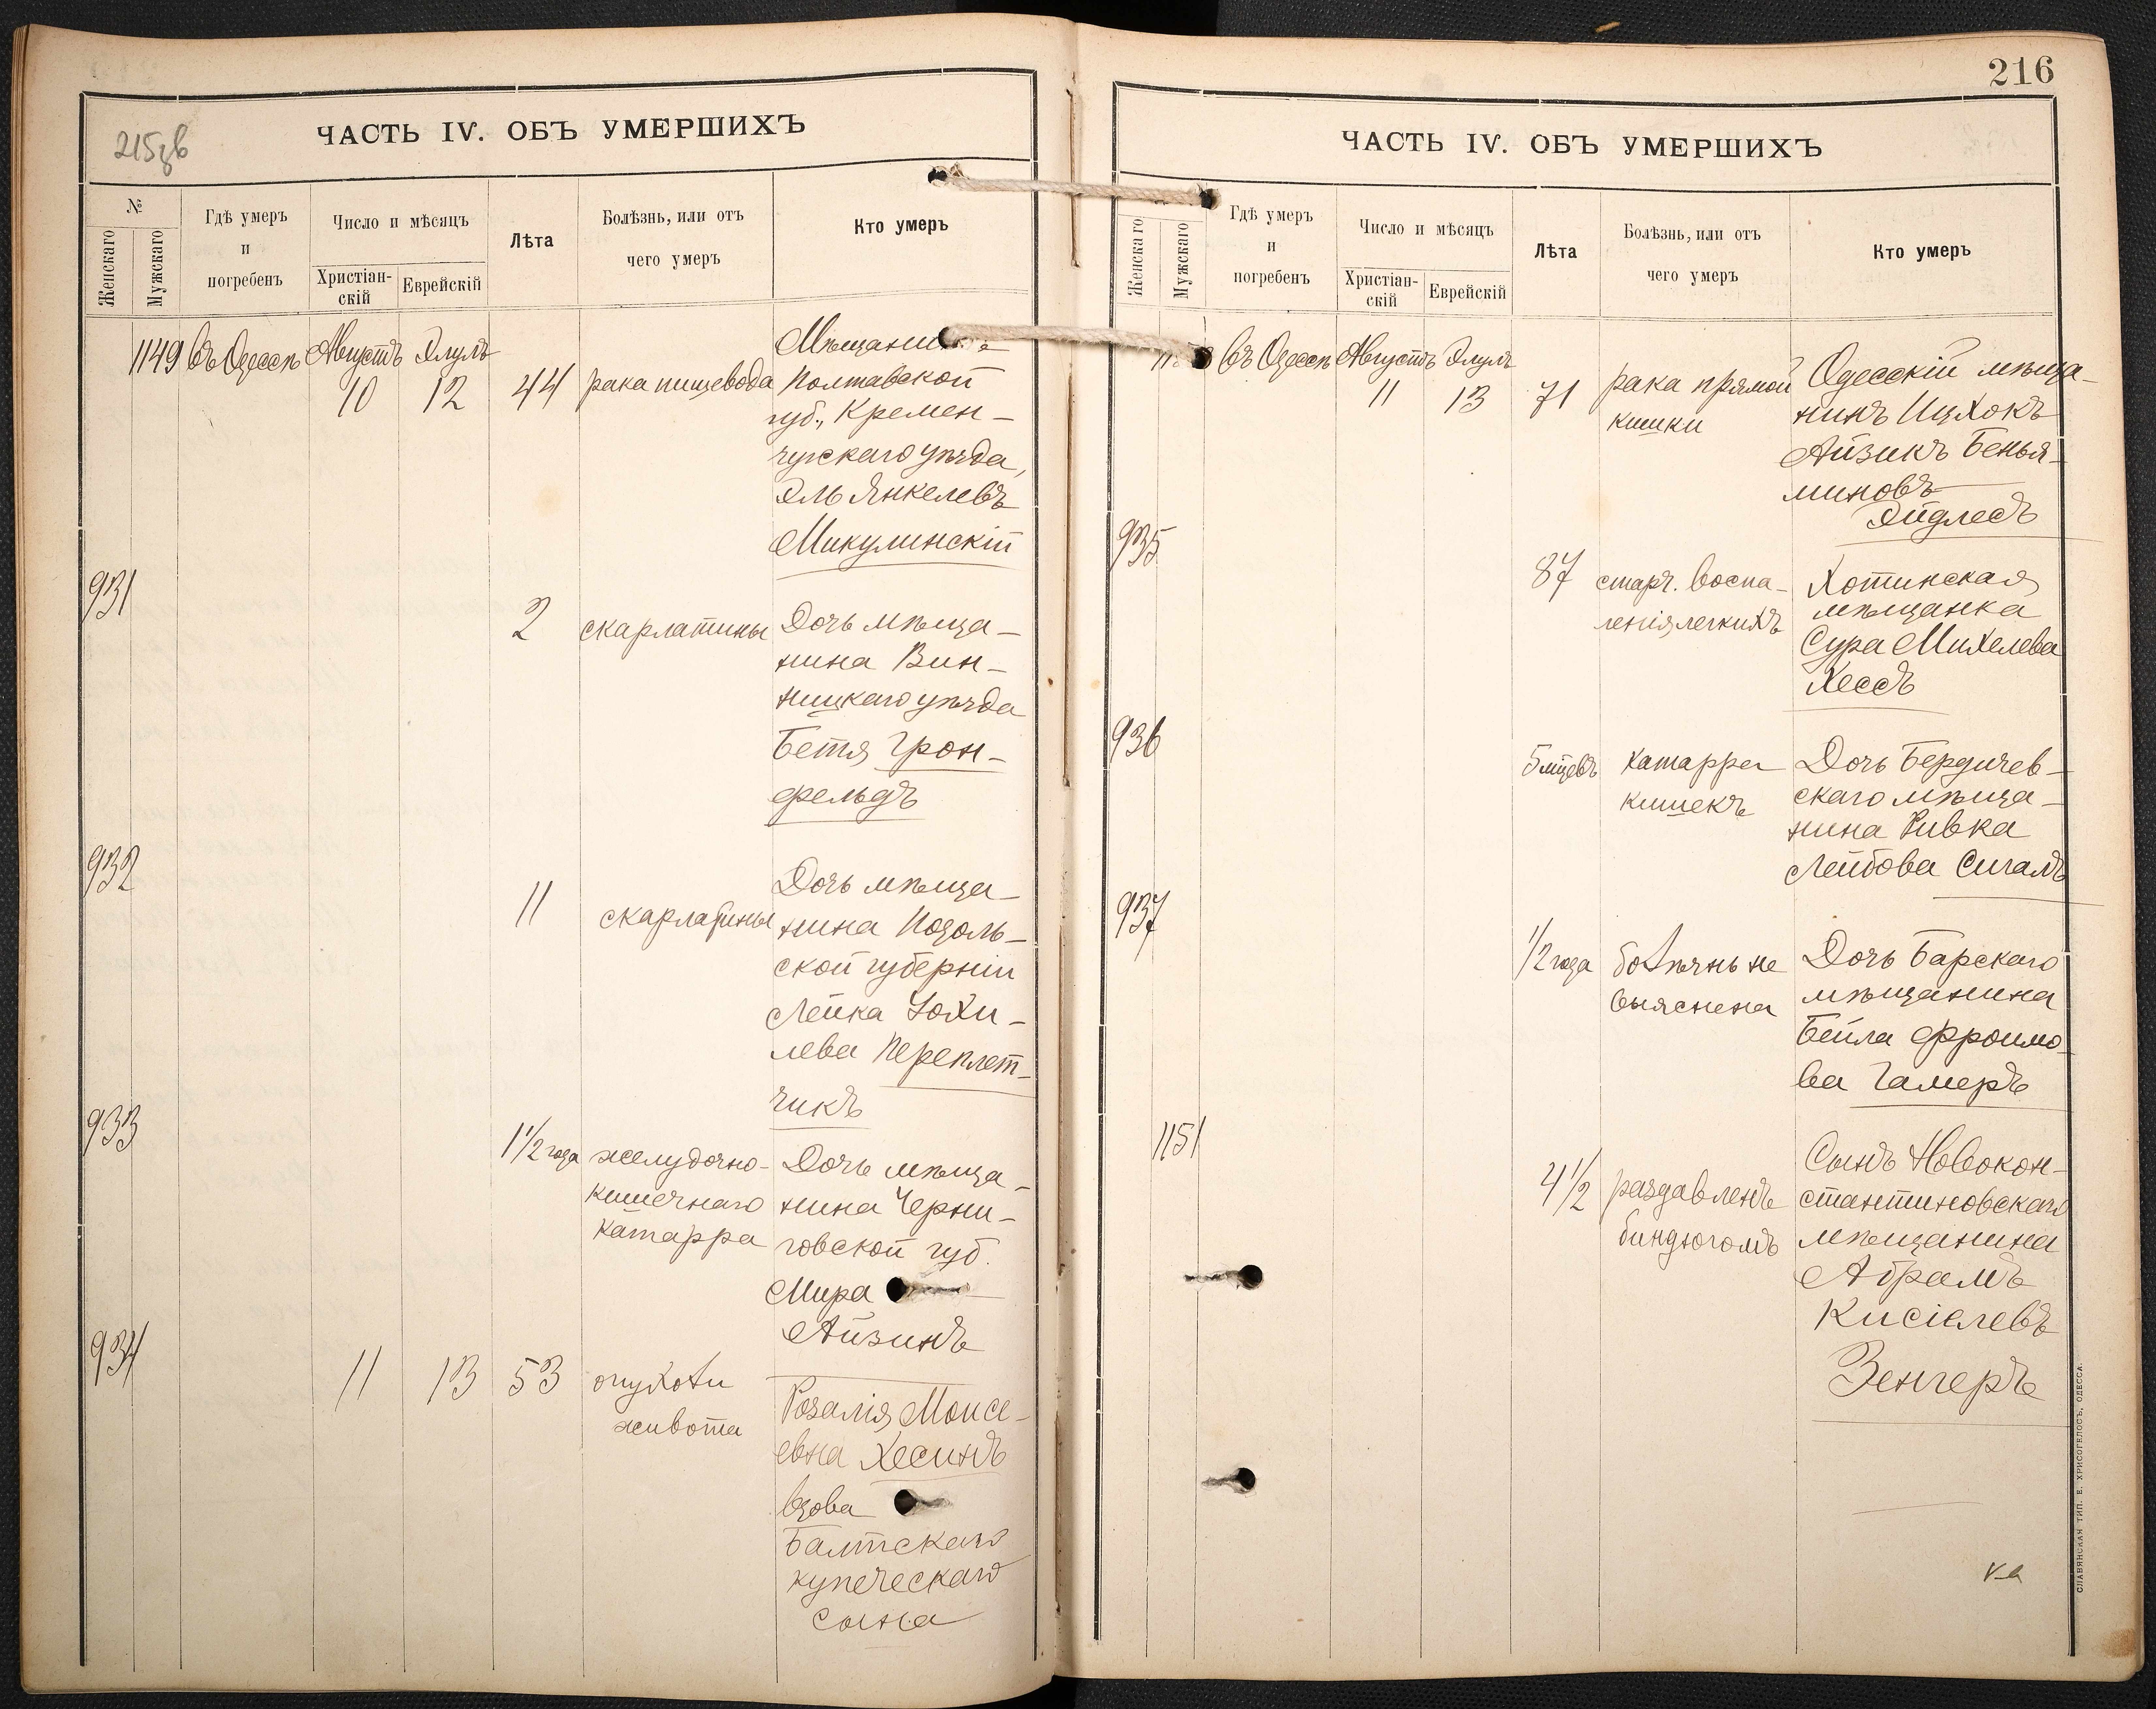 215 зв
ЧАСТЬ IV. ОБЪ УМЕРШИХЪ
№
Женскаго
Мужскаго
Гдѣ умеръ
и
погребенъ
Число и мѣсяцъ
Христіан-
скій
Еврейскій
Лѣта
Болѣзнь, или отъ
чего умеръ
Кто умеръ
1149 въ Одессѣ Августъ Элулъ
10 12 44 рака пищевода
Мѣщанинъ
Полтавской
губ., Кремен-
чугскаго уѣзда,
Эль Янкелевъ
Микулинскій
931
2 скарлатины
Дочь мѣща-
нина Вин-
ницкаго уѣзда
Бетя Грон-
фельдъ
932
11 скарлатины
Дочь мѣща-
нина Подоль-
ской губерніи
Лейка Іохи-
лева Переплет-
чикъ
933
1 1/2 года желудочно-
кишечнаго
катарра
Дочь мѣща-
нина Черни-
говской губ.
Мира
Айзинъ
934
11 13 53 опухоли
живота
Розалія Моисе-
евна Хесинъ
вдова
Балтскаго
купеческаго
сына
216
ЧАСТЬ IV. ОБЪ УМЕРШИХЪ
Женскаго
Мужскаго
Гдѣ умеръ
и
погребенъ
Число и мѣсяцъ
Христіан-
скій
Еврейскій
Лѣта
Болѣзнь, или отъ
чего умеръ
Кто умеръ
въ Одессѣ Августъ Элулъ
11 13 71 рака прямой
кишки
Одесскій мѣща-
нинъ Ицхокъ
Айзикъ Бенья-
миновъ
Эйдлесъ
935
87 старч. воспа-
ленія легкихъ
Хотинская
мѣщанка
Сура Михелева
Хессъ
936
5 мцевъ катарра
кишекъ
Дочь Бердичев-
скаго мѣща-
нина Ривка
Лейбова Сигалъ
937
1/2 года болѣзнь не
выяснена
Дочь Барскаго
мѣщанина
Бейла Фроимо-
ва Гамеръ
1151
4 1/2 раздавленъ
биндюгомъ
Сынъ Новокон-
стантиновскаго
мѣщанина
Абрамъ
Кисіелевъ
Зенгеръ
СЛАВЯНСКАЯ ТИП. Е. ХРИСОГЕЛОСЪ, ОДЕССА.